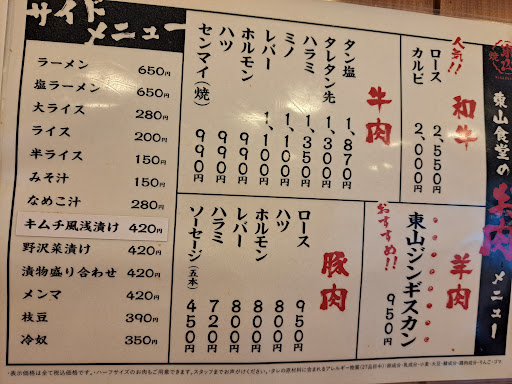 東山食堂の
生肉
メニュー
和牛
人気!!
ロース 2,550円
カルビ 2,000円
羊肉
おすすめ!!
東山ジンギスカン
950円
牛肉
タン塩 1,870円
タレタン先 1,300円
ハラミ 1,350円
ミノ 1,100円
レバー 1,100円
ホルモン 990円
ハツ 990円
センマイ(焼) 990円
豚肉
ロース 950円
ハツ 800円
ホルモン 800円
レバー 800円
ハラミ 720円
ソーセージ(五本) 450円
サイドメニュー
ラーメン 650円
塩ラーメン 650円
大ライス 280円
ライス 200円
半ライス 150円
みそ汁 150円
なめこ汁 280円
キムチ風浅漬け 420円
野沢菜漬け 420円
漬物盛り合わせ 420円
メンマ 420円
枝豆 390円
冷奴 350円
・表示価格は全て税込価格です。・ハーフサイズのお肉もご用意できます。スタッフまでお声がけください。・タレの原材料に含まれるアレルギー物質(27品目中)